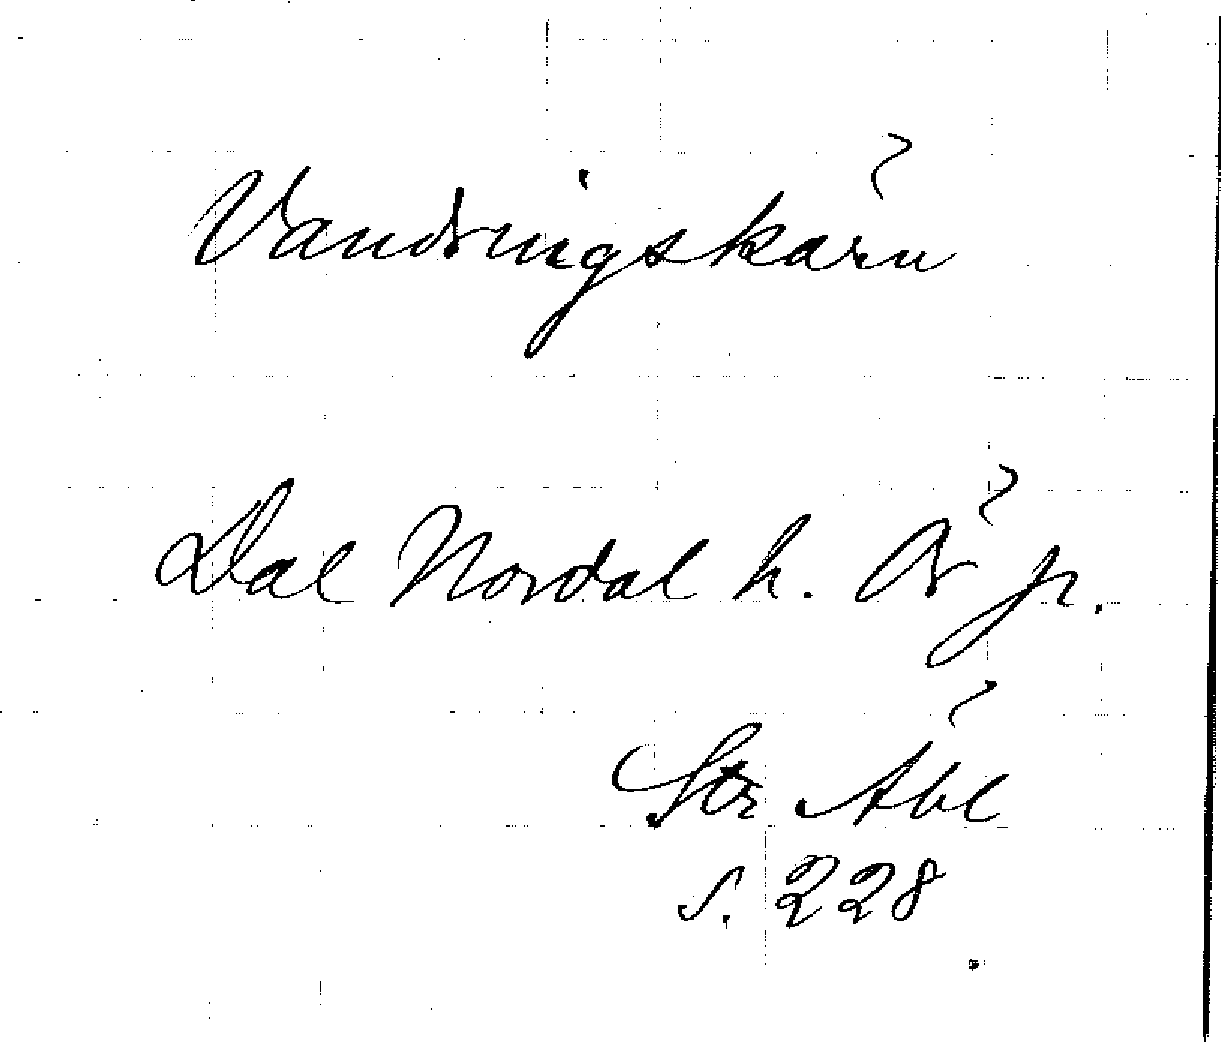 Vandringskärn
Dal Nordal h. Ör fr.
Str Åbl
s. 228